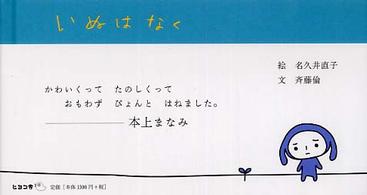 いぬはなく
絵 名久井直子
文 斉藤倫
かわいくって たのしくって
おもわず ぴょんと はねました。
本上まなみ
ヒヨコ舎 定価[本体1300円+税]